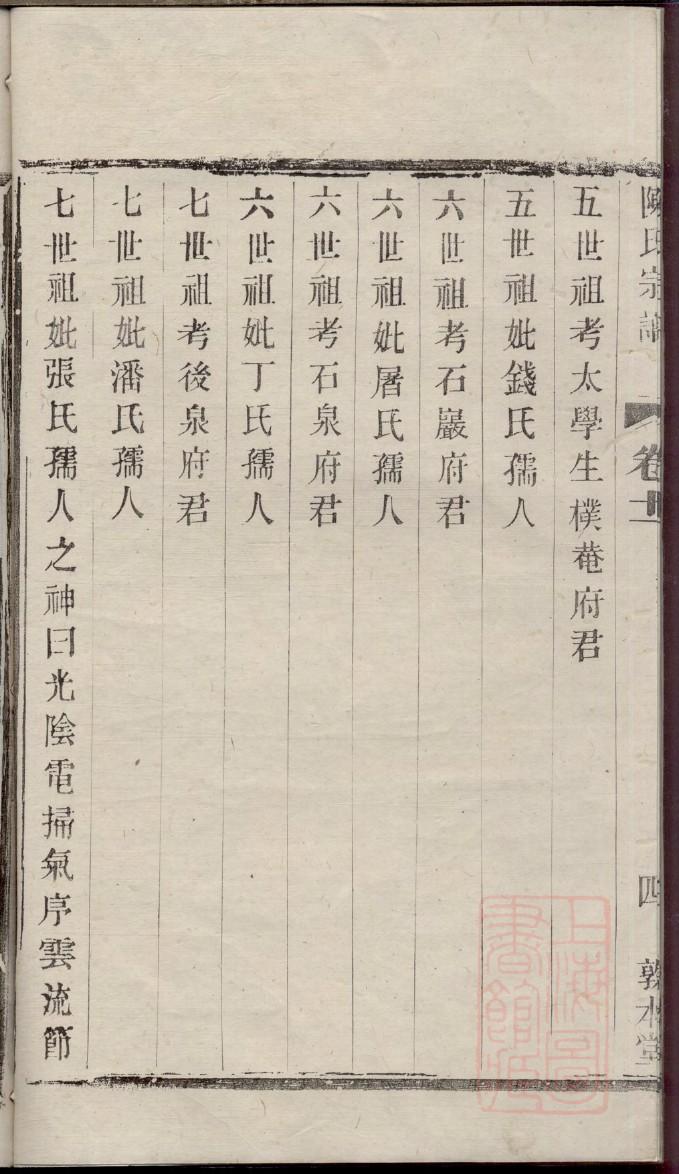 陳氏宗譜
卷十
四
敦本堂
五世祖考太學生樸菴府君
五世祖妣錢氏孺人
六世祖考石巖府君
六世祖妣屠氏孺人
六世祖考石泉府君
六世祖妣丁氏孺人
七世祖考後泉府君
七世祖妣潘氏孺人
七世祖妣張氏孺人之神曰光陰電掃氣序雲流節
上海圖書館藏